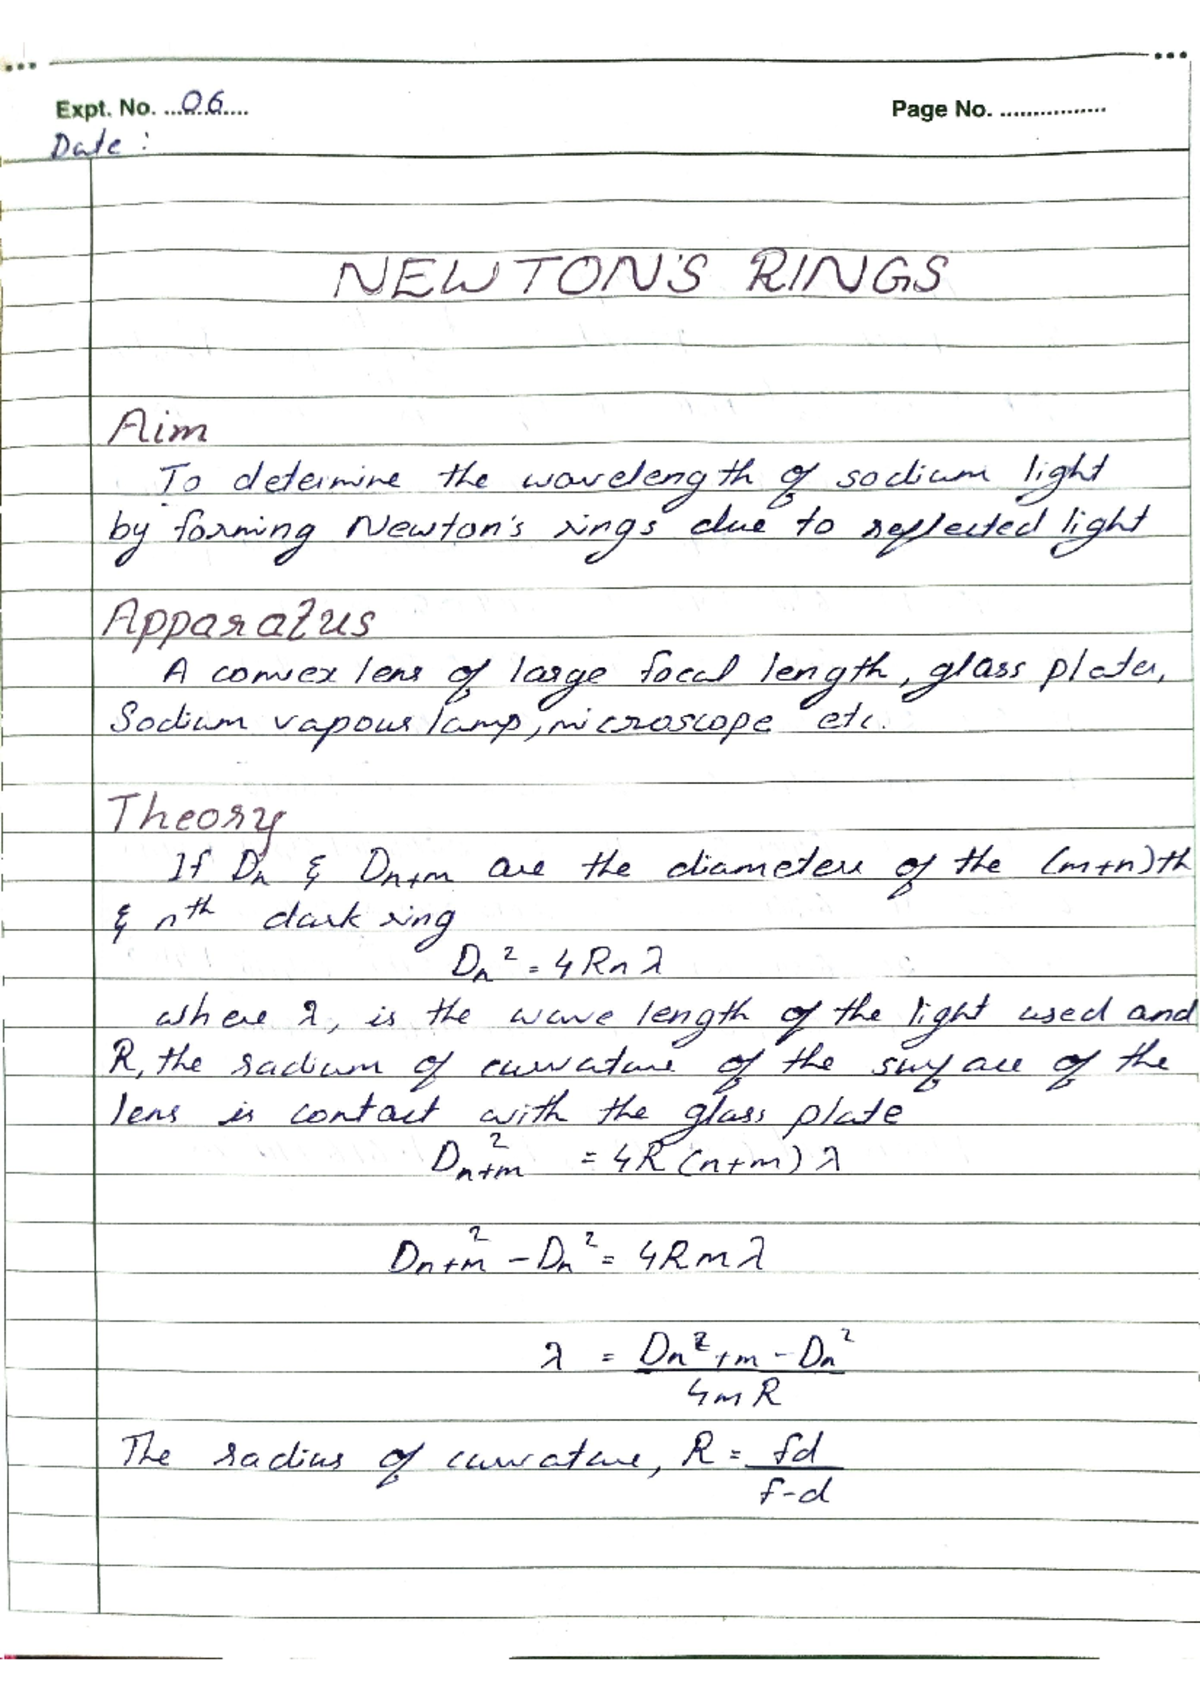 Expt. No. ...06....
Page No. ................
Date :
NEWTON'S RINGS
Aim
To determine the wavelength of sodium light
by forming Newton's rings due to reflected light
Apparatus
A convex lens of large focal length, glass plates,
Sodium vapour lamp, microscope etc.
Theory
If Dn & Dn+m are the diameters of the (m+n)th
& nth dark ring
Dn² = 4Rnλ
where λ, is the wave length of the light used and
R, the radium of curvature of the surface of the
lens is contact with the glass plate
Dn+m² = 4R(n+m)λ
Dn+m² - Dn² = 4Rmλ
λ = Dn²+m - Dn²
4mR
The radius of curvature, R = fd
f-d